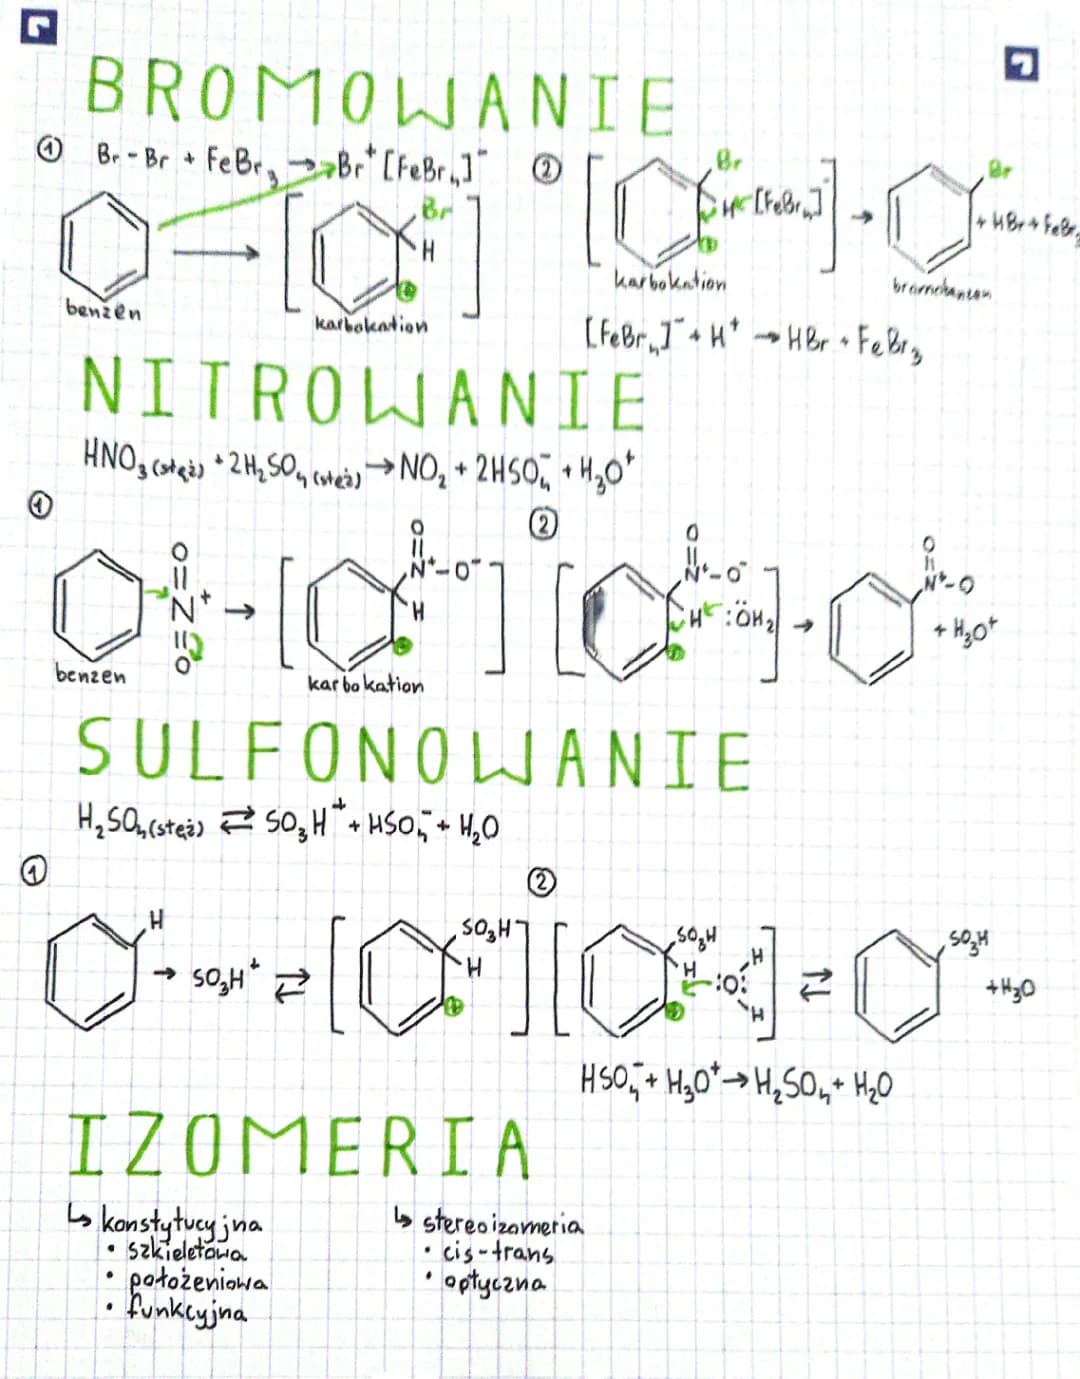 BROMOWANIE
① Br-Br + FeBr₃ → Br⁺[FeBr₄]⁻
Br
H
⊕
benzen
karbokation
②
Br
H [FeBr₄]⁻
⊕
karbokation
→
Br
+ HBr + FeBr₃
[FeBr₄]⁻ + H⁺ → HBr + FeBr₃
NITROWANIE
HNO₃(stęż) + 2H₂SO₄(stęż) → NO₂ + 2HSO₄⁻ + H₃O⁺
①
O
N⁺
O
→
O
N⁺-O⁻
H
⊕
benzen
karbokation
②
O
N⁺-O⁻
H :ÖH₂
⊕
→
O
N⁺-O
+ H₃O⁺
SULFONOWANIE
H₂SO₄(stęż) ⇄ SO₃H⁺ + HSO₄⁻ + H₂O
①
H
→ SO₃H⁺ ⇄
SO₃H
H
⊕
②
SO₃H
H :O:
H
H
⊕
⇄
SO₃H
+H₃O
HSO₄⁻ + H₃O⁺ → H₂SO₄ + H₂O
IZOMERIA
↳ konstytucyjna
• szkieletowa
• położeniowa
• funkcyjna
↳ stereoizomeria
• cis-trans
• optyczna